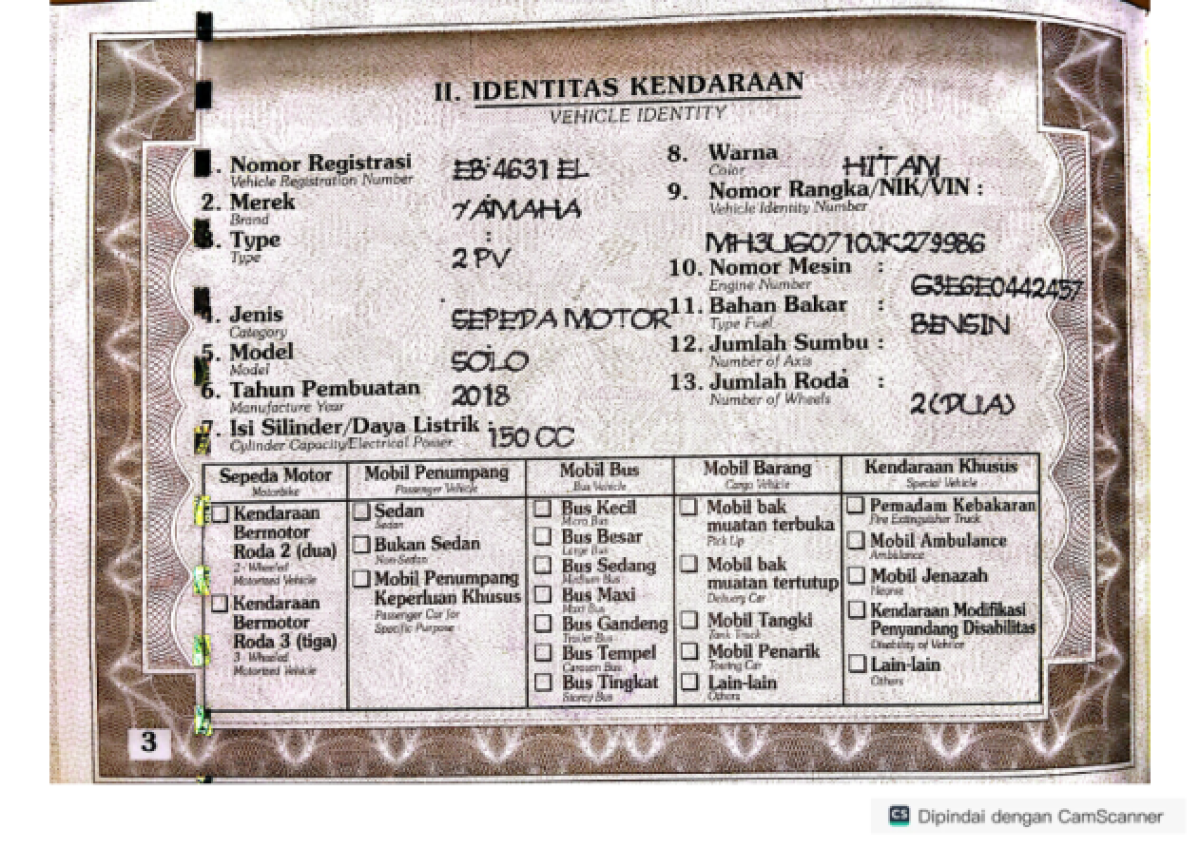 II. IDENTITAS KENDARAAN
VEHICLE IDENTITY
1. Nomor Registrasi : EB 4631 EL
Vehicle Registration Number
2. Merek : YAMAHA
Brand
3. Type : 2PV
Type
4. Jenis : SEPEDA MOTOR
Category
5. Model : SOLO
Model
6. Tahun Pembuatan 2018
Manufacture Year
7. Isi Silinder/Daya Listrik : 150 CC
Cylinder Capacity/Electrical Power
8. Warna : HITAM
Color
9. Nomor Rangka/NIK/VIN :
Vehicle Identity Number
MH3UG0710JK279986
10. Nomor Mesin : G3E6E0442457
Engine Number
11. Bahan Bakar : BENSIN
Type Fuel
12. Jumlah Sumbu :
Number of Axis
13. Jumlah Roda : 2 (DUA)
Number of Wheels
Sepeda Motor
Motorbike
Kendaraan
Bermotor
Roda 2 (dua)
2 - Wheeled
Motorized Vehicle
Kendaraan
Bermotor
Roda 3 (tiga)
3 - Wheeled
Motorized Vehicle
Mobil Penumpang
Passenger Vehicle
Sedan
Sedan
Bukan Sedan
Non-Sedan
Mobil Penumpang
Keperluan Khusus
Passenger Car for
Specific Purpose
Mobil Bus
Bus Vehicle
Bus Kecil
Micro Bus
Bus Besar
Large Bus
Bus Sedang
Medium Bus
Bus Maxi
Maxi Bus
Bus Gandeng
Trailer Bus
Bus Tempel
Caravan Bus
Bus Tingkat
Storey Bus
Mobil Barang
Cargo Vehicle
Mobil bak
muatan terbuka
Pick Up
Mobil bak
muatan tertutup
Delivery Car
Mobil Tangki
Tank Truck
Mobil Penarik
Towing Car
Lain-lain
Others
Kendaraan Khusus
Special Vehicle
Pemadam Kebakaran
Fire Extinguisher Truck
Mobil Ambulance
Ambulance
Mobil Jenazah
Hearse
Kendaraan Modifikasi
Penyandang Disabilitas
Disability of Vehicle
Lain-lain
Others
3
CS Dipindai dengan CamScanner